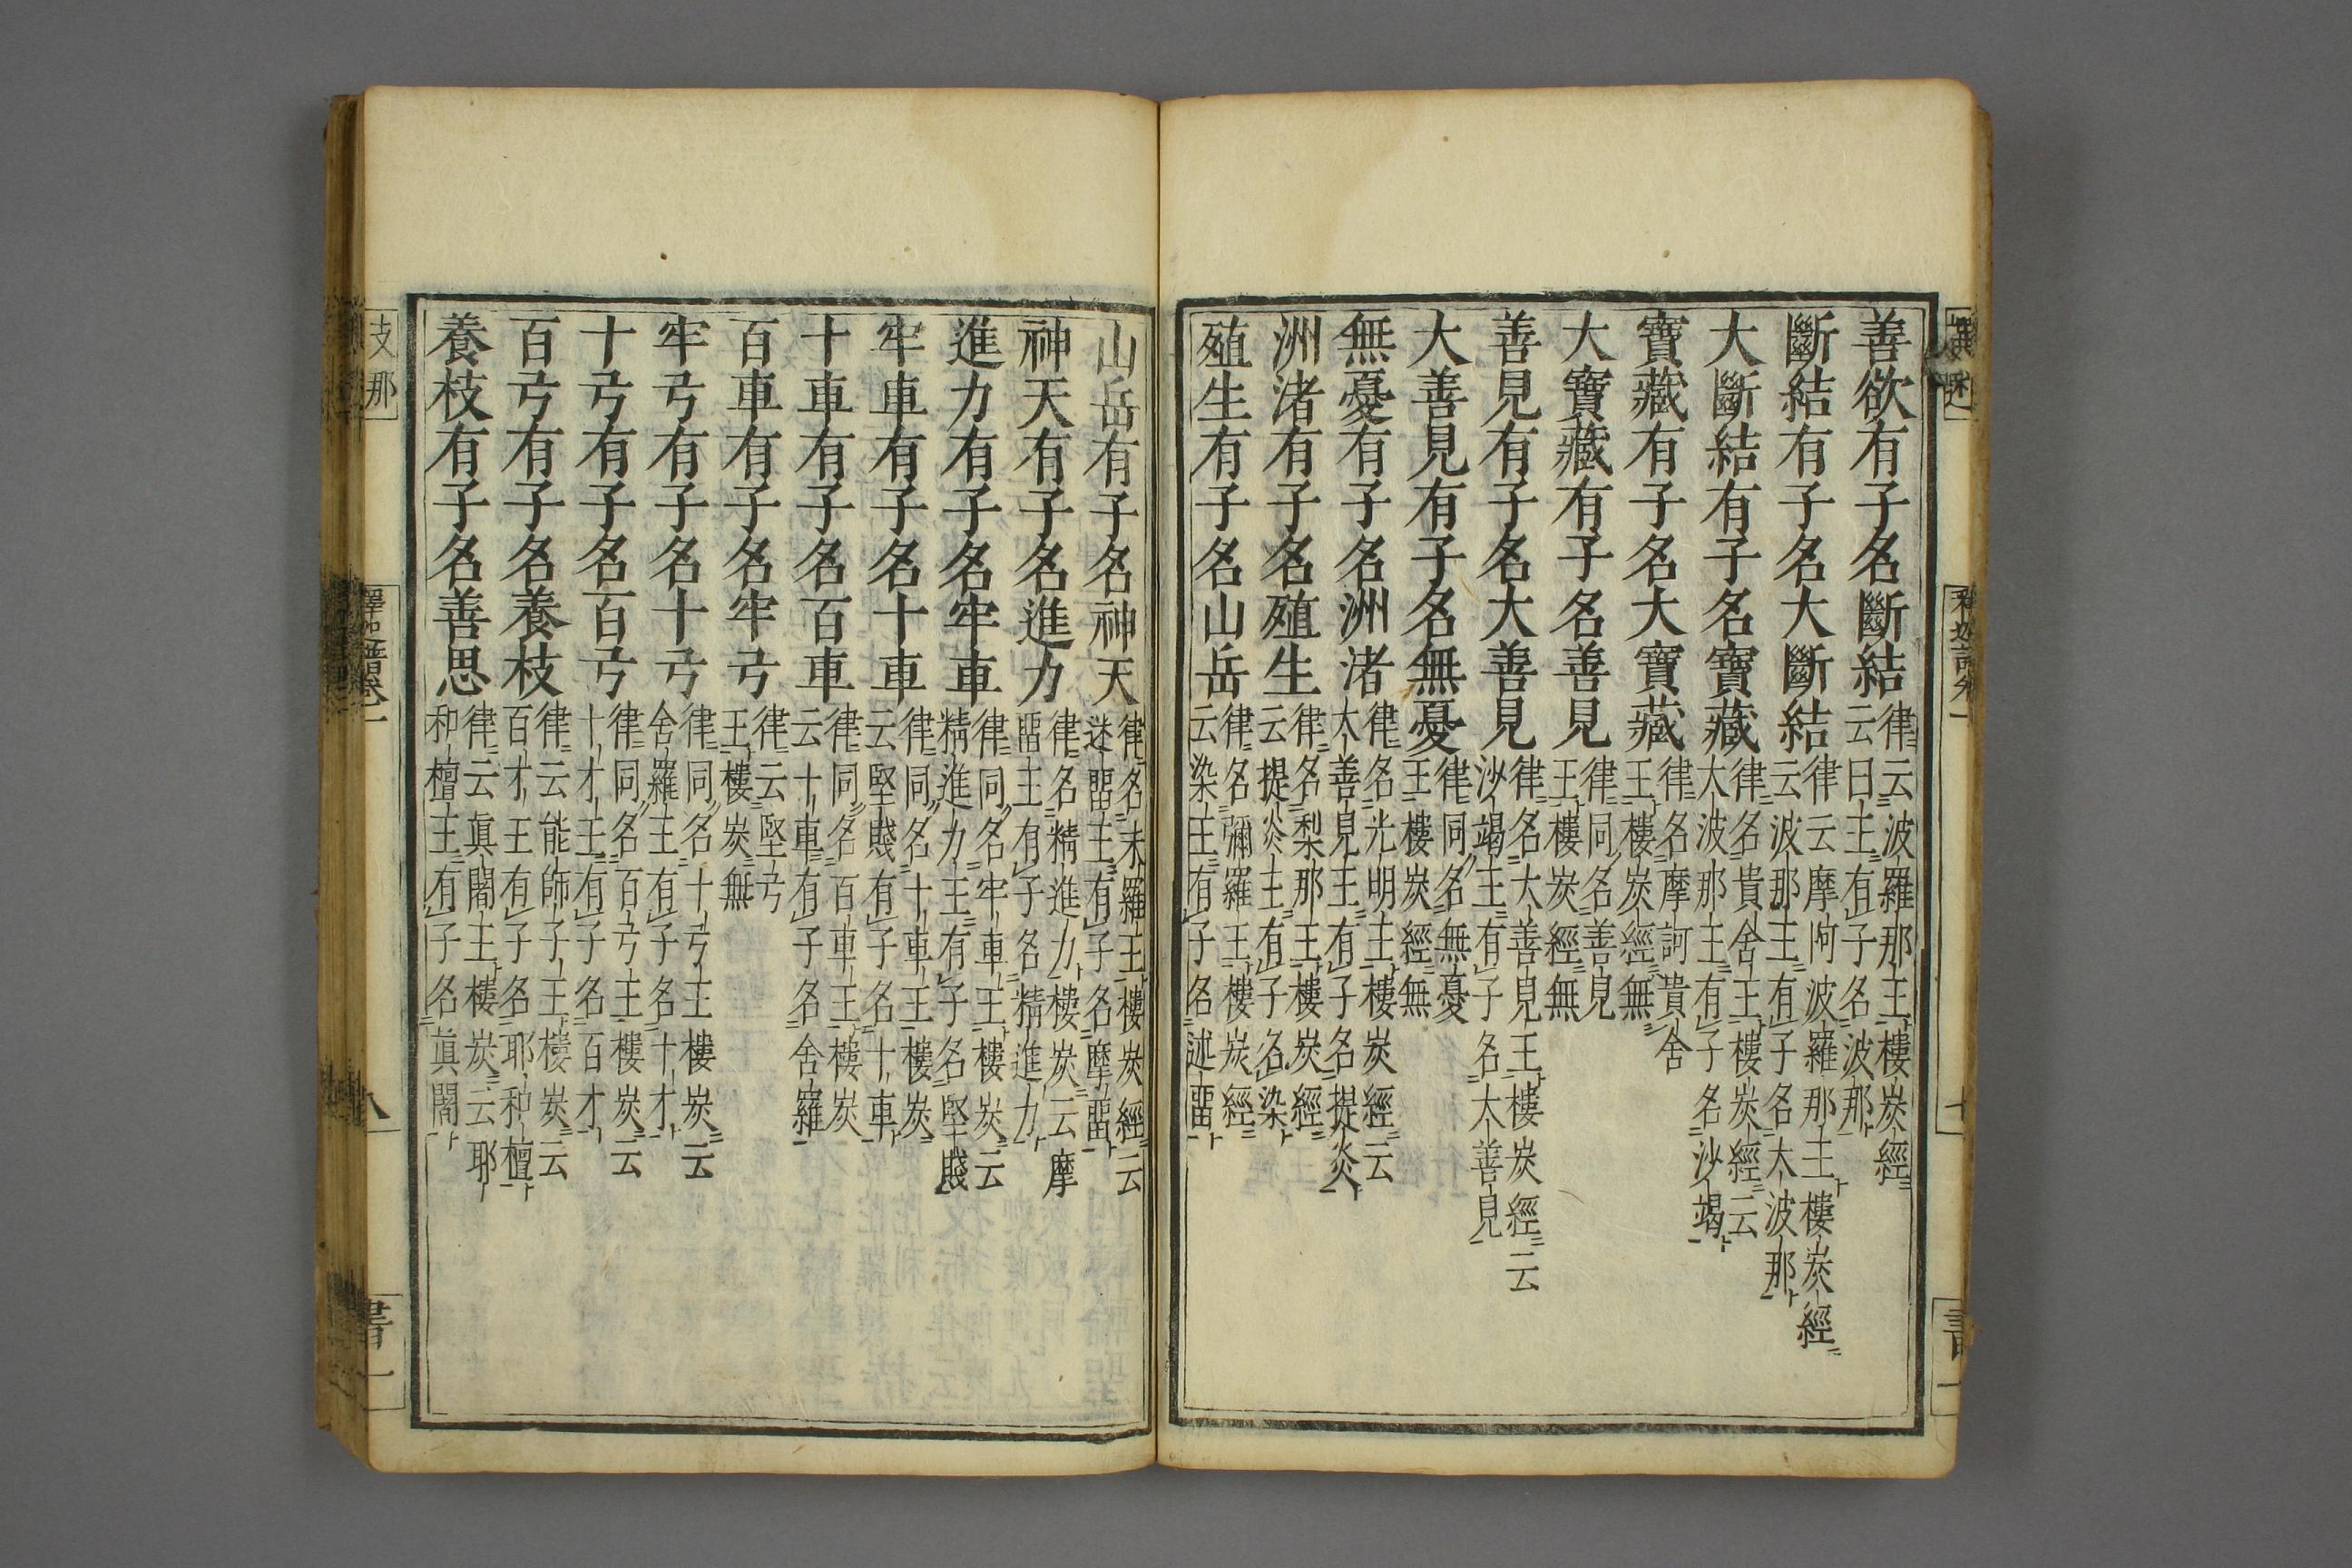 善欲有子名斷結律云波羅那王樓炭經云曰王有子名波那
斷結有子名大斷結律云摩訶波羅那王樓炭經云波那王有子名大波那
大斷結有子名寶藏律名貴舍王樓炭經云大波那王有子名沙竭
寶藏有子名大寶藏律名摩訶貴舍王樓炭經無
大寶藏有子名善見律同名善見王樓炭經無
善見有子名大善見律名大善見王樓炭經云沙竭王有子名大善見
大善見有子名無憂律同名無憂王樓炭經無
無憂有子名洲渚律名光明王樓炭經云大善見王有子名提炎
洲渚有子名殖生律名梨那王樓炭經云提炎王有子名染
殖生有子名山岳律名彌羅王樓炭經云染王有子名述㽞
山岳有子名神天律名末羅王樓炭經云迷㽞王有子名摩㽞
神天有子名進力律名精進力樓炭云摩㽞王有子名精進力
進力有子名牢車律同名牢車王樓炭云精進力王有子名堅賤
牢車有子名十車律同名十車王樓炭云堅賤有子名十車
十車有子名百車律同名百車王樓炭云十車有子名舍羅
百車有子名牢弓律云堅弓王樓炭無
牢弓有子名十弓律同名十弓王樓炭云舍羅王有子名十才
十弓有子名百弓律同名百弓王樓炭云十才王有子名百才
百弓有子名養枝律云能師子王樓炭云百才王有子名耶和檀
養枝有子名善思律云眞闍王樓炭云耶和檀王有子名眞闍
支那
釋迦譜卷一
八
書一